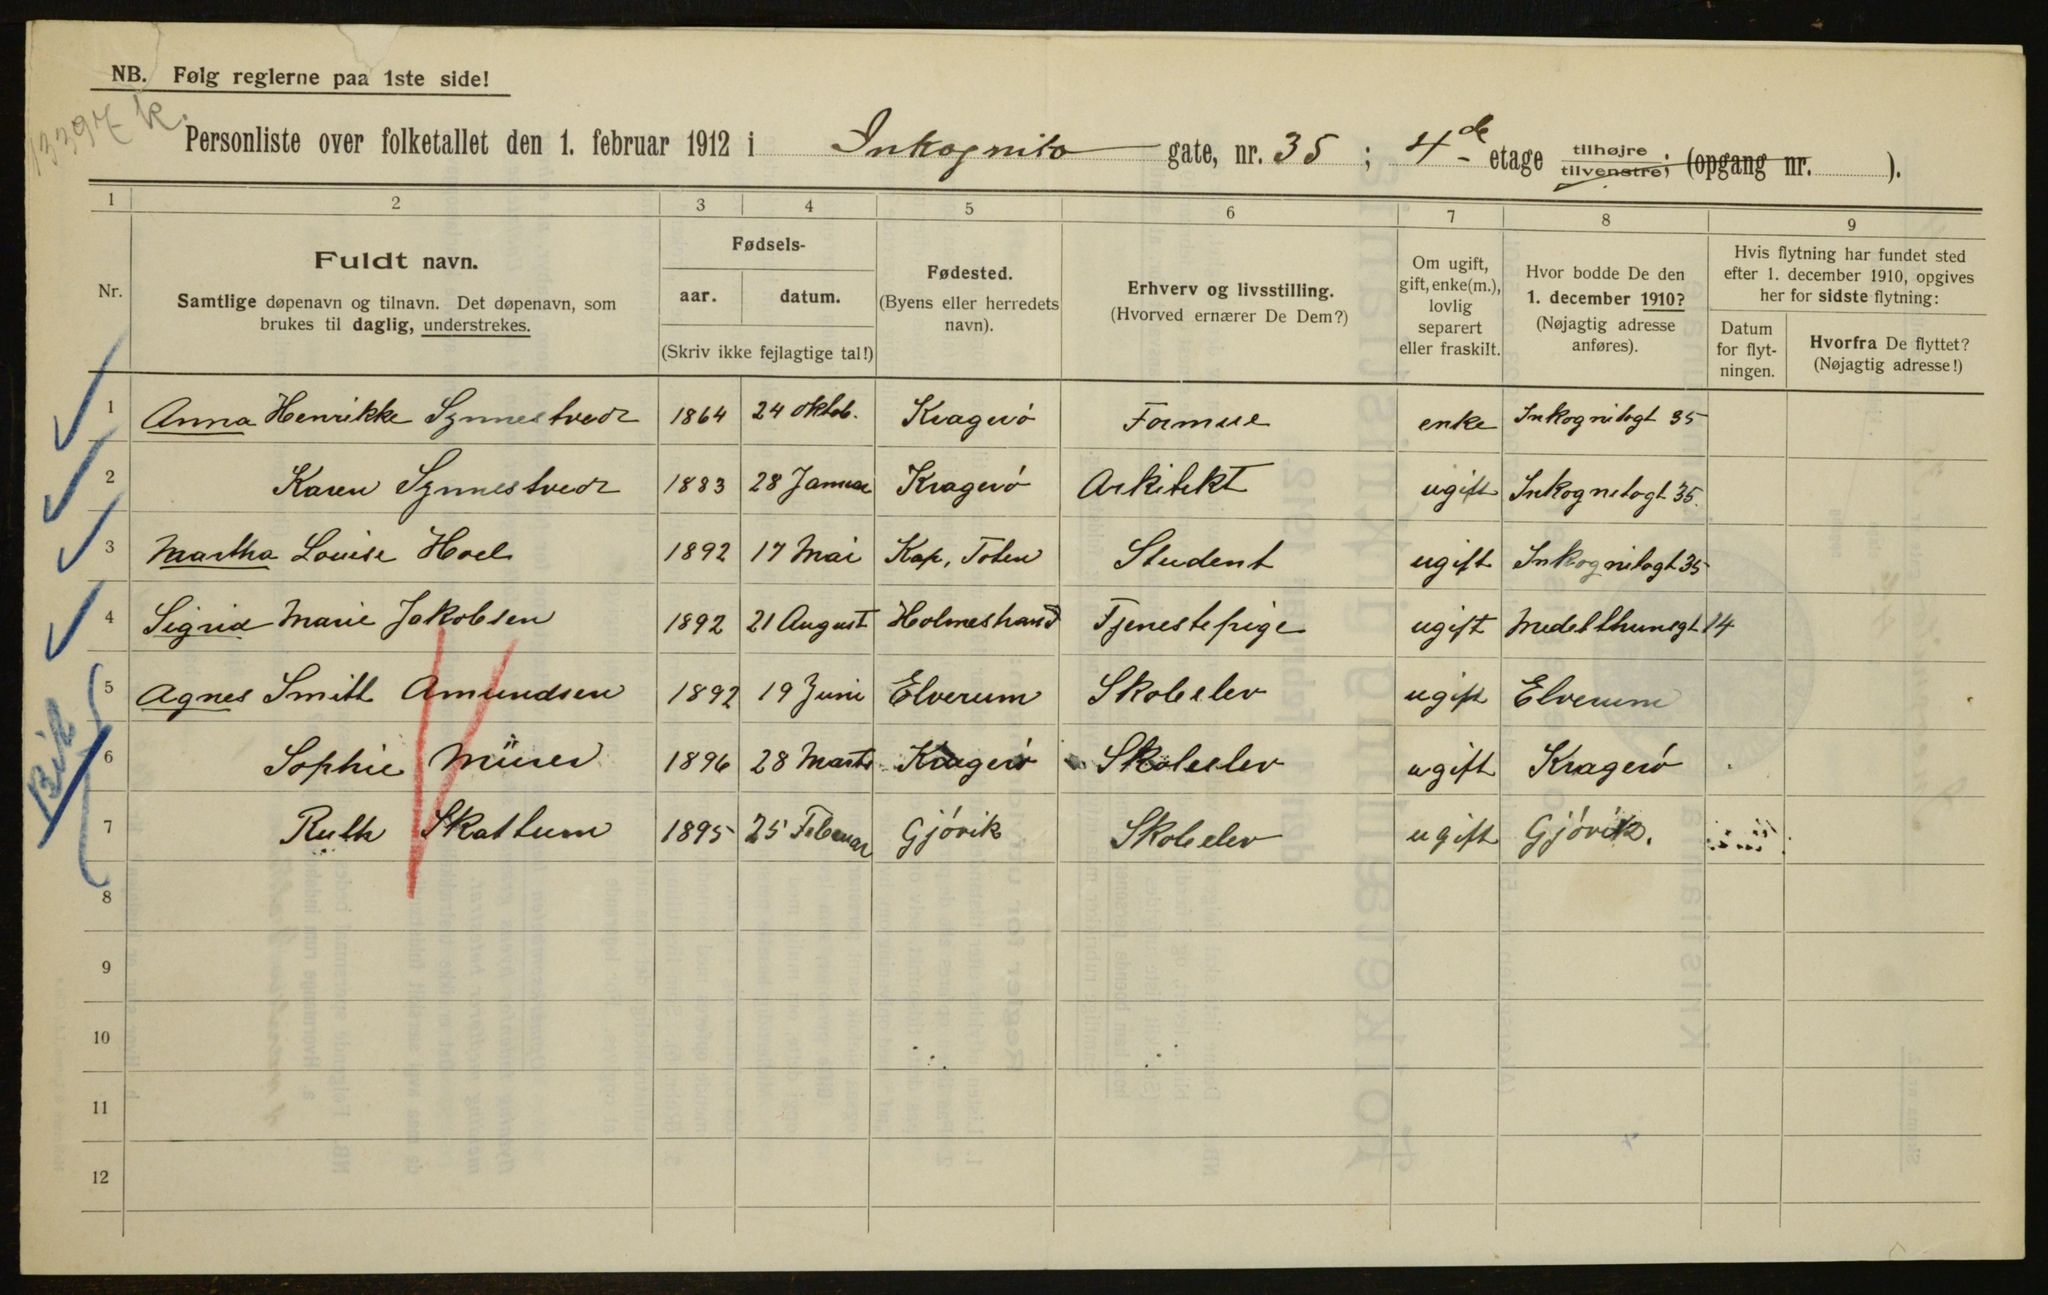 NB. Følg reglerne paa 1ste side!
13397 k.
Personliste over folketallet den 1. februar 1912 i Inkognito gate, nr. 35 ; 4de etage tilhøjre tilvenstre; (opgang nr. ).
1 2 3 4 5 6 7 8 9
Nr.
Fuldt navn.
Samtlige døpenavn og tilnavn. Det døpenavn, som
brukes til daglig, understrekes.
Fødsels-
aar. datum.
(Skriv ikke fejlagtige tal!)
Fødested.
(Byens eller herredets
navn).
Erhverv og livsstilling.
(Hvorved ernærer De Dem?)
Om ugift,
gift, enke(m.),
lovlig
separert
eller fraskilt.
Hvor bodde De den
1. december 1910?
(Nøjagtig adresse
anføres).
Hvis flytning har fundet sted
efter 1. december 1910, opgives
her for sidste flytning:
Datum
for flyt-
ningen.
Hvorfra De flyttet?
(Nøjagtig adresse!)
1 Anna Henrikke Synnestvedt 1864 24 oktob. Kragerö Formue enke Inkognitogt 35
2 Karen Synnestvedt 1883 28 Januar Kragerö Arkitekt ugift Inkognitogt 35.
3 Martha Louise Hoel 1892 17 Mai Kap, Toten Student ugift Inkognitogt 35
4 Sigrid Marie Jakobsen 1892 21 August Holmestrand Tjenestepige ugift Medelthunsgt 14
5 Agnes Smitt Amundsen 1892 19 Juni Elverum Skoleelev ugift Elverum
6 Sophie Müner 1896 28 Marts Kragerö Skoleelev ugift Kragerö
7 Ruth Skattum 1895 25 Februar Gjövik Skoleelev ugift Gjövik.
8
9
10
11
12